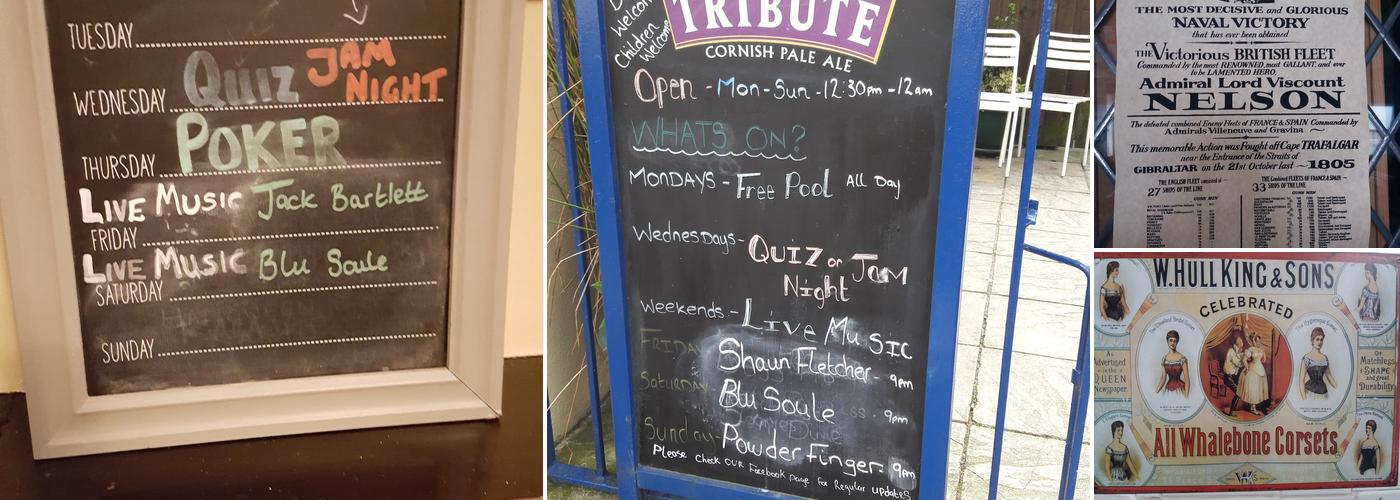 TUESDAY
QUIZ JAM NIGHT
WEDNESDAY
POKER
THURSDAY
LIVE MUSIC Jack Bartlett
FRIDAY
LIVE MUSIC Blu Soule
SATURDAY
SUNDAY
Welcome
Children
Welcome
TRIBUTE
CORNISH PALE ALE
Open - Mon-Sun -12:30pm -12am
WHATS ON?
MONDAYS - Free Pool All Day
Wednesdays- QUIZ or JaM
Night
Weekends - Live MuSIC
FRIDAY Shaun Fletcher - 9pm
Saturday Blu Soule - 9pm
Sunday - Powder finger - 9pm
Please check our Facebook page for Regular updates
THE MOST DECISIVE and GLORIOUS
NAVAL VICTORY
that has ever been obtained
THE Victorious BRITISH FLEET
Commanded by the most RENOWNED, most GALLANT, and ever
to be LAMENTED HERO,
Admiral Lord Viscount
NELSON
The defeated combined Enemy Fleets of FRANCE & SPAIN Commanded by
Admirals Villeneuve and Gravina
This memorable Action was Fought off Cape TRAFALGAR
near the Entrance of the Straits of
GIBRALTAR on the 21st October last ~ 1805
THE ENGLISH FLEET consisted of
27 SHIPS OF THE LINE
THE Combined FLEETS OF FRANCE & SPAIN
33 SHIPS OF THE LINE
GUNS MEN
GUNS MEN
W. HULL KING & SONS
CELEBRATED
As
Advertised
in the
QUEEN
Newspaper
Of
Matchless
SHAPE
and great
Durability
All Whalebone Corsets